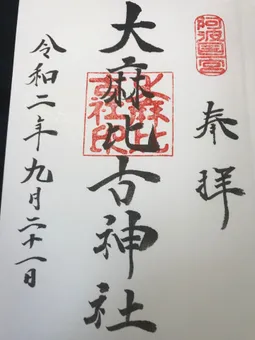 奉拝
阿波國一宮
大麻比古神社
大麻比古社印
令和二年九月二十一日